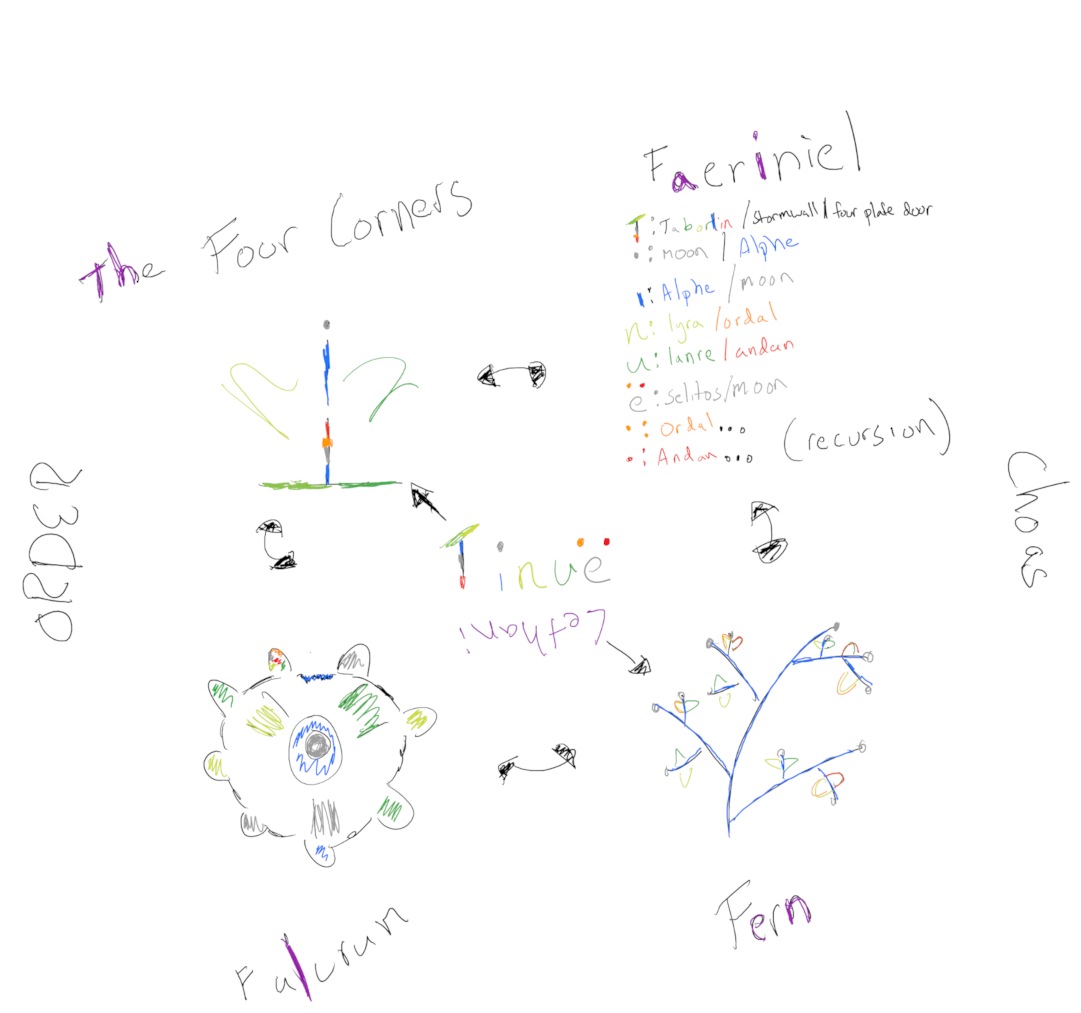 Faeriniel
The Four Corners
T: Taborlin / stormwall / four plate door
•: moon / Alphe
ı: Alphe / moon
n: lyra / ordal
u: lanre / andan
ë: selitos/moon
•: Ordal...
•: Andan...
(recursion)
ORDER
Choas
Tinuë
Lethani
Falcrum
Fern